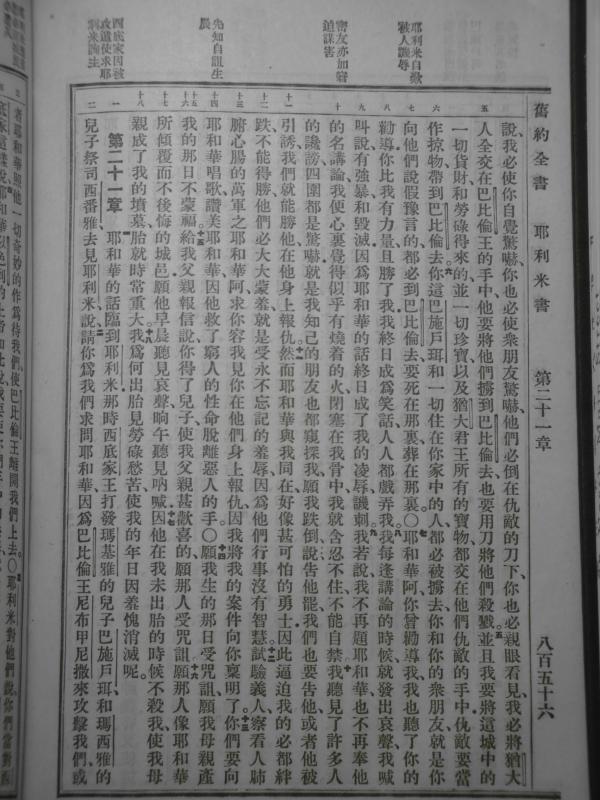 舊約全書 耶利米書 第二十一章 八百五十六
耶利米自歎
被人譏辱
密友亦加窘
迫謀害
先知自詛生
辰
西底家因被
攻遣使求耶
利米詢主
說我必使你自覺驚嚇你也必使衆朋友驚嚇他們必倒在仇敵的刀下你也必親眼看見我必將猶大
五 人全交在巴比倫王的手中他要將他們擄到巴比倫去也要用刀將他們殺戮五並且我要將這城中的
一切貨財和勞碌得來的並一切珍寶以及猶大君王所有的寶物都交在他們仇敵的手中仇敵要當
六 作掠物帶到巴比倫去六你這巴施戶珥和一切住在你家中的人都必被擄去你和你的衆朋友就是你
七 向他們說假豫言的都必到巴比倫去要死在那裏葬在那裏○七耶和華阿你曾勸導我我也聽了你的
八 勸導你比我有力量且勝了我我終日成爲笑話人人都戲弄我八我每逢講論的時候就發出哀聲我喊
九 叫說有強暴和毀滅因爲耶和華的話終日成了我的凌辱譏刺九我若說我不再題耶和華也不再奉他
十 的名講論我便心裏覺得似乎有燒着的火閉塞在我骨中我就含忍不住不能自禁十我聽見了許多人
的讒謗四圍都是驚嚇就是我知己的朋友也都窺探我願我跌倒說告他罷我們也要告他或者他被
十一 引誘我們就能勝他在他身上報仇十一然而耶和華與我同在好像甚可怕的勇士因此逼迫我的必都絆
十二 跌不能得勝他們必大大蒙羞就是受永不忘記的羞辱因爲他們行事沒有智慧十二試驗義人察看人肺
十三 腑心腸的萬軍之耶和華阿求你容我見你在他們身上報仇因我將我的案件向你稟明了十三你們要向
十四 耶和華唱歌讚美耶和華因他救了窮人的性命脫離惡人的手○十四願我生的那日受咒詛願我母親產
十五 十六 我的那日不蒙福十五給我父親報信說你得了兒子使我父親甚歡喜的願那人受咒詛十六願那人像耶和華
十七 所傾覆而不後悔的城邑願他早晨聽見哀聲晌午聽見吶喊十七因他在我未出胎的時候不殺我使我母
十八 親成了我的墳墓胎就時常重大十八我爲何出胎見勞碌愁苦使我的年日因羞愧消滅呢
一 第二十一章 一耶和華的話臨到耶利米那時西底家王打發瑪基雅的兒子巴施戶珥和瑪西雅的
二 兒子祭司西番雅去見耶利米說二請你爲我們求問耶和華因爲巴比倫王尼布甲尼撒來攻擊我們或
三 者耶和華照他一切奇妙的作爲待我們使巴比倫王離開我們上去○三耶利米對他們說你們當對西